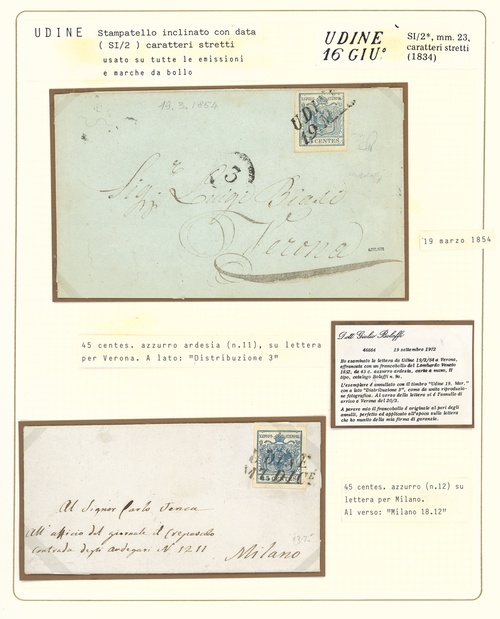 UDINE
Stampatello inclinato con data
( SI/2 ) caratteri stretti
usato su tutte le emissioni
e marche da bollo
UDINE
16 GIU°
SI/2*, mm. 23,
caratteri stretti
(1834)
19.3.1854
UDINE
19
CENTES.
3
Sigr Luigi Biasi
Verona
19 marzo 1854
45 centes. azzurro ardesia (n.11), su lettera
per Verona. A lato: "Distribuzione 3"
Dott. Giulio Bolaffi
46664 19 settembre 1972
Ho esaminato la lettera da Udine 19/3/54 a Verona,
affrancata con un francobollo del Lombardo Veneto
1852, da 45 c. azzurro ardesia, carta a mano, II
tipo, catalogo Bolaffi n. 9c.
L'esemplare è annullato con il timbro "Udine 19. Mar."
con a lato "Distribuzione 3", come da unita riproduzio-
ne fotografica. Al verso della lettera vi è l'annullo di
arrivo a Verona del 20/3.
A parere mio il francobollo è originale al pari degli
annulli, perfetto ed applicato all'epoca sulla lettera
che ho munito della mia firma di garanzia.
UDINE
Al Signor Carlo Tenca
All'ufficio del giornale il Crepuscolo
Contrada degli Andegari N. 12.11
Milano
45 centes. azzurro (n.12) su
lettera per Milano.
Al verso: "Milano 18.12"